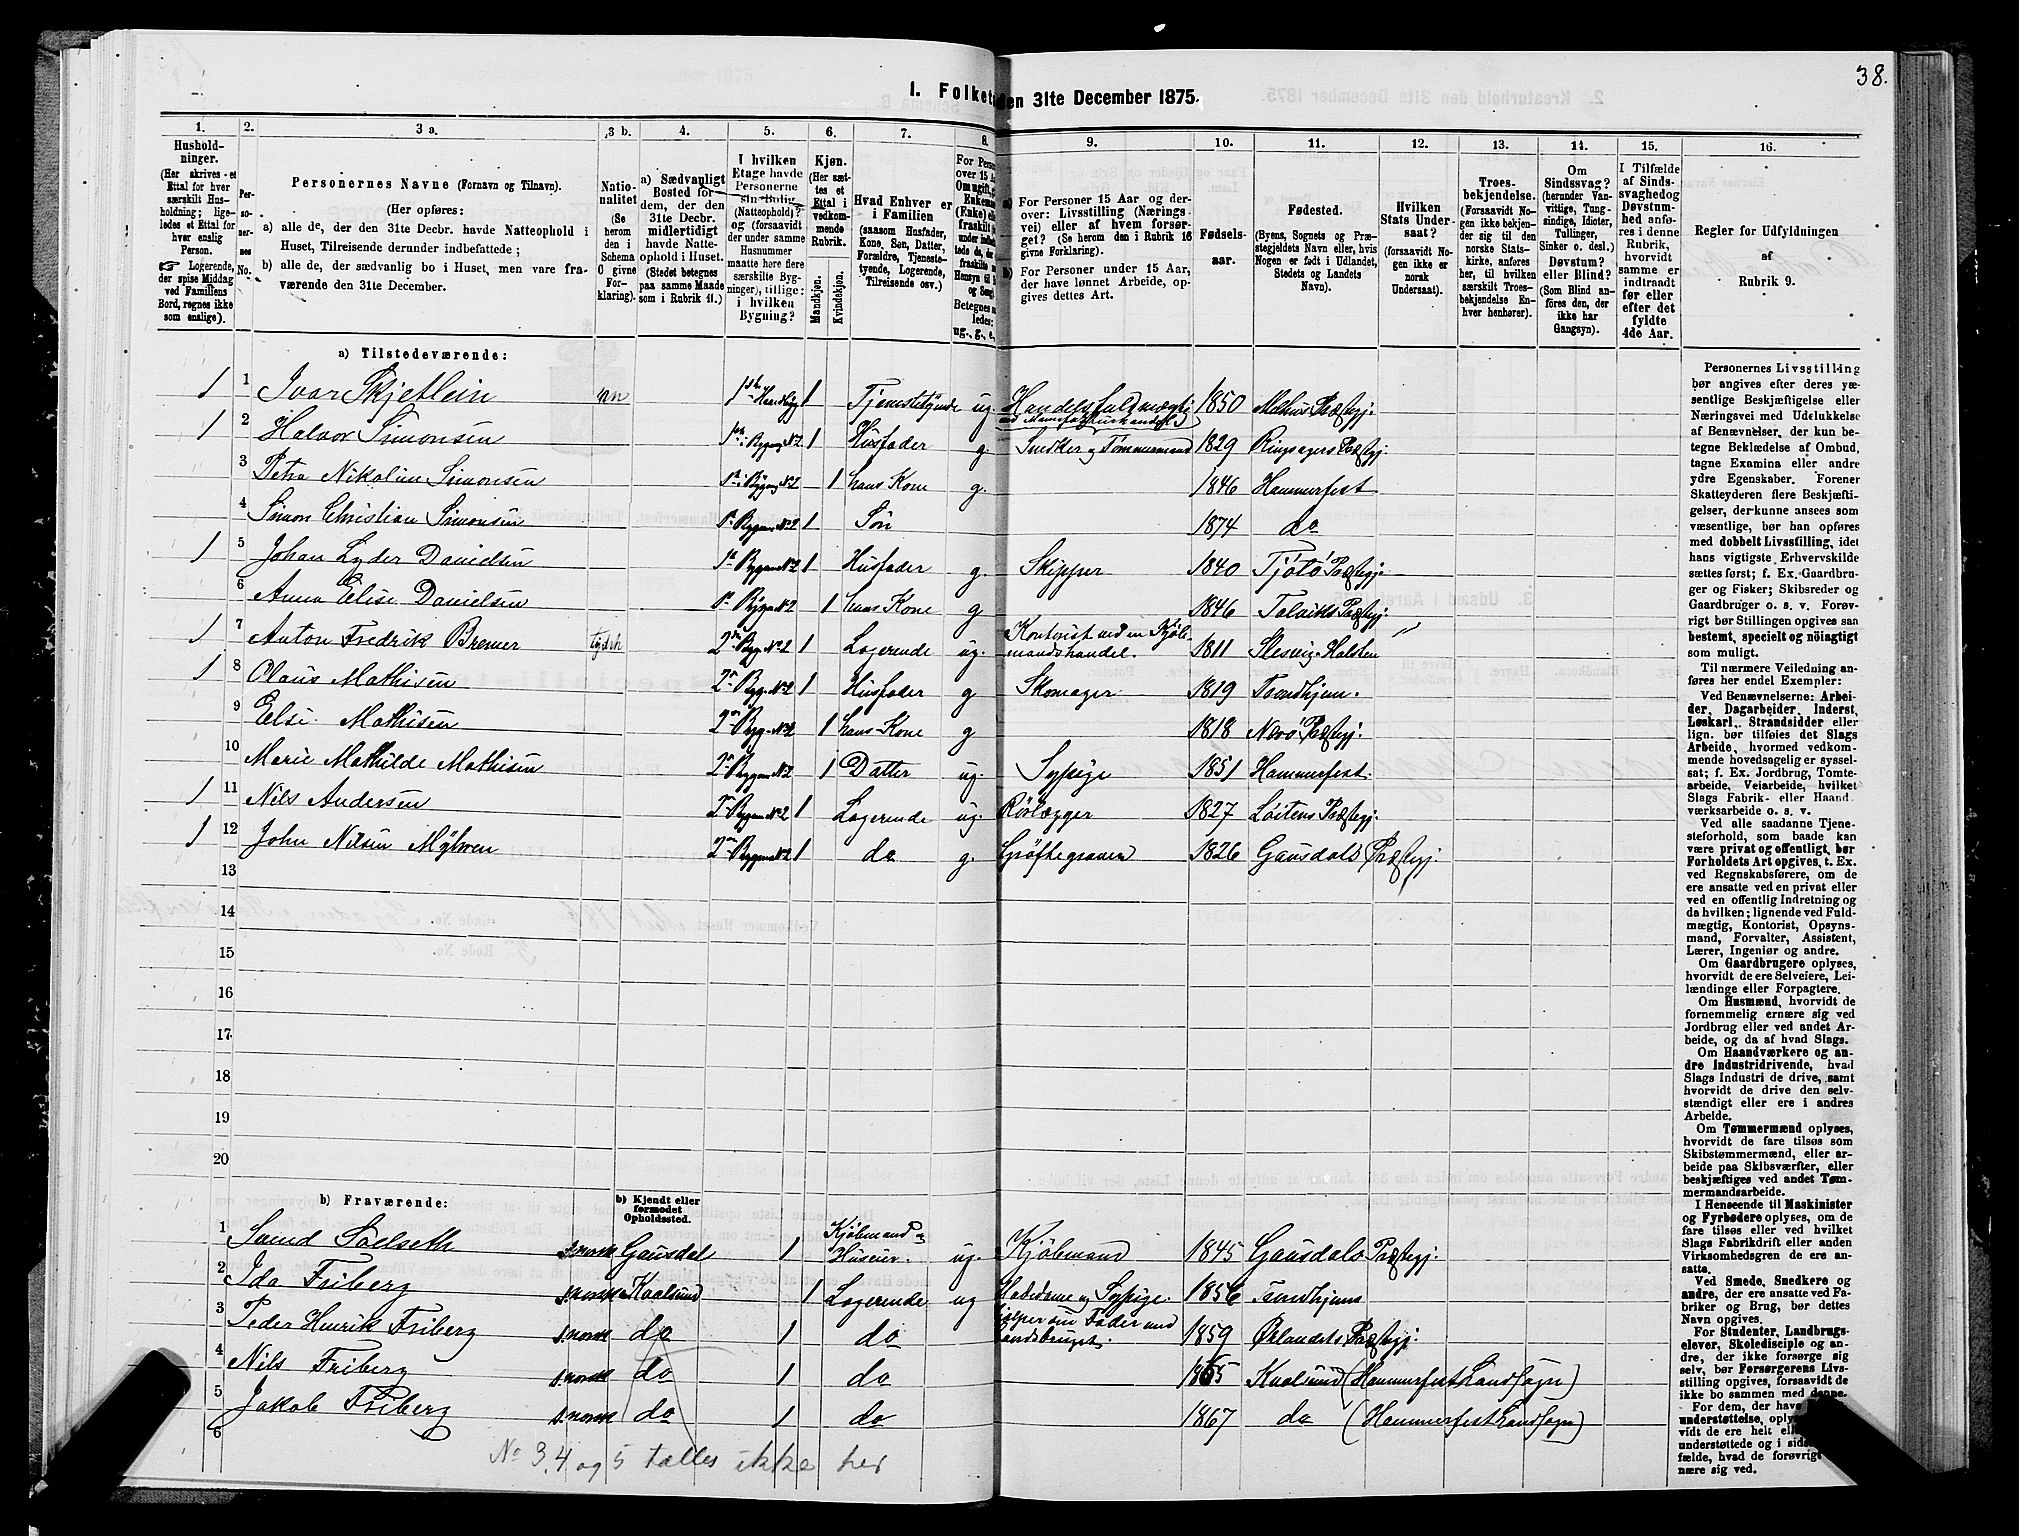 38.
I. Folket
den 31te December 1875.
1. 2. 3 a. 3 b. 4. 5. 6. 7. 8. 9. 10. 11. 12. 13. 14. 15. 16.
Hushold-
ninger.
(Her skrives et
Ettal for hver
særskilt Hus-
holdning; lige-
ledes et Ettal for
hver enslig
Person.
Logerende,
der spise Middag
ved Familiens
Bord, regnes ikke
som enslige).
Per-
so-
ner-
nes
No.
Personernes Navne (Fornavn og Tilnavn).
(Her opføres:
a) alle de, der den 31te Decbr. havde Natteophold i
Huset, Tilreisende derunder indbefattede;
b) alle de, der sædvanlig bo i Huset, men vare fra-
værende den 31te December.
Natio-
nalitet
(Se
herom
den i
Schema
O givne
For-
klaring).
a) Sædvanligt
Bosted for
dem, der den
31te Decbr.
midlertidigt
havde Natte-
ophold i Huset.
(Stedet betegnes
paa samme Maade
som i Rubrik 11.)
I hvilken
Etage havde
Personerne
sin Bolig
(Natteophold)?
og (forsaavidt
der under samme
Husnummer
maatte høre flere
særskilte Byg-
ninger), tillige:
i hvilken
Bygning?
Kjøn.
(Her sæt-
tes et
Ettal i
vedkom-
mende
Rubrik.
Mandkjøn.
Kvindekjøn.
Hvad Enhver er
i Familien
(saasom Husfader,
Kone, Søn, Datter,
Forældre, Tjeneste-
tyende, Logerende,
Tilreisende osv.)
For Perso
over 15 A
Om ugift, g
Enkema
(Enke) ell
fraskilt
ug., g., e.,
a) For Personer 15 Aar og der-
over: Livsstilling (Nærings-
vei) eller af hvem forsør-
get? (Se herom den i Rubrik 16
givne Forklaring).
b) For Personer under 15 Aar,
der have lønnet Arbeide, op-
gives dettes Art.
Fødsels-
aar.
Fødested.
(Byens, Sognets og Præ-
stegjeldets Navn eller, hvis
Nogen er født i Udlandet,
Stedets og Landets
Navn).
Hvilken
Stats Under-
saat?
(forsaavidt No-
gen ikke er
norsk
Undersaat).
Troes-
bekjendelse.
(Forsaavidt No-
gen ikke bekjen-
der sig til den
norske Stats-
kirke, anføres
her, til hvilken
særskilt Troes-
bekjendelse En-
hver henhører).
Om
Sindssvag?
(herunder Van-
vittige, Tung-
sindige, Idioter,
Tullinger,
Sinker o. desl.)
Døvstum?
eller Blind?
(Som Blind an-
føres den, der
ikke har
Gangsyn).
I Tilfælde
af Sinds-
svaghed og
Døvstum-
hed anfø-
res i denne
Rubrik,
hvorvidt
samme er
indtraadt
før eller
efter det
fyldte
4de Aar.
Regler for Udfyldningen
af
Rubrik 9.
a) Tilstedeværende:
1 1 Ivar Skjetlein 1 Tjenstetyende ug. Handelsfuldmægtig ved Manufakturhandel 1850 Melhus Præstegj.
1 2 Halvor Simonsen 1 Husfader g. Snedker og Tømmermand 1829 Ringsagers Præstegj.
3 Petra Nikoline Simonsen 1 hans Kone g. 1846 Hammerfest
4 Simon Christian Simonsen 1 Søn 1874 do
1 5 Johan Lyder Danielsen 1 Husfader g. Skipper 1840 Tjøtø Præstegj.
6 Anna Elise Danielsen 1 hans Kone g 1846 Talviks Præstegj.
1 7 Anton Fredrik Bremer tydsk 1 Logerende ug. Kontorist ved en Kjøb-
mandshandel. 1811 Slesvig-Holsten "
1 8 Claus Mathisen 1 Husfader g Skomager 1819 Trondhjem.
9 Else Mathisen 1 hans Kone g 1818 Nærø Præstegj:
10 Marie Mathilde Mathisen 1 Datter ug. Sypige 1851 Hammerfest.
1 11 Nils Andersen 1 Logerende ug. Rørlægger 1827 Løitens Præstegj.
1 12 John Nilsen Myhren 1 do g. Grøftegraver 1826 Gausdals Præstegj.
13
14
15
16
17
18
19
20
b) Fraværende:
b) Kjendt eller
formodet
Opholdssted.
1 Sælseth s. norsk Gausdal 1 Kjøbmand
Huseier. ug. Kjøbmand 1845 Gausdals Præstegj.
2 Ida Friberg s. norsk Kvalsund 1 Logerende ug Sypige. 1856 Trondhjem
3 Peder Henrik Friberg s. norsk do 1 do Hjælper sin Fader ved
Landsbruget. 1859 Ørlandets Præstegj.
4 Nils Friberg s. norsk do 1 do 1865 Kvalsund (Hammerfest Landsogn)
5 Jakob Friberg s. norsk do 1 do 1867 do (Hammerfest Landsogn)
6
No 3, 4 og 5 tælles ikke her
Personernes Livsstilling
bør angives efter deres væ-
sentlige Beskjæftigelse eller
Næringsvei med Udelukkelse
af Benævnelser, der kun be-
tegne Beklædelse af Ombud,
tagne Examina eller andre
ydre Egenskaber. Forener
Skatteyderen flere Beskjæfti-
gelser, der kunne ansees som
væsentlige, bør han opføres
med dobbelt Livsstilling, idet
hans vigtigste Erhvervskilde
sættes først; f. Ex. Gaardbru-
ger og Fisker; Skibsreder og
Gaardbruger o. s. v. Forøv-
rigt bør Stillingen opgives saa
bestemt, specielt og nøiagtigt
som muligt.
Til nærmere Veiledning an-
føres her endel Exempler:
Ved Benævnelserne: Arbei-
der, Dagarbeider, Inderst,
Løskarl, Strandsidder eller
lign. bør tilføies det Slags
Arbeide, hvormed vedkom-
mende hovedsagelig er syssel-
sat; f. Ex. Jordbrug, Tomte-
arbeide, Veiarbeide, hvilket
Slags Fabrik- eller Haand-
værksarbeide o. s. v.
Ved alle saadanne Tjene-
steforhold, som baade kan
være privat og offentligt, bør
Forholdets Art opgives, t. Ex.
ved Regnskabsførere, om de
ere ansatte ved en privat eller
ved en offentlig Indretning og
da hvilken; lignende ved Fuld-
mægtig, Kontorist, Opsyns-
mand, Forvalter, Assistent,
Lærer, Ingeniør og andre.
Om Gaardbrugere oplyses,
hvorvidt de ere Selveiere, Lei-
lændinge eller Forpagtere.
Om Husmænd, hvorvidt de
fornemmelig ernære sig ved
Jordbrug eller ved andet Ar-
beide, og da af hvad Slags.
Om Haandværkere og an-
dre Industridrivende, hvad
Slags Industri de drive, samt
hvorvidt de drive den selv-
stændigt eller ere i andres
Arbeide.
Om Tømmermænd oplyses,
hvorvidt de fare tilsøs som
Skibstømmermænd, eller ar-
beide paa Skibsværfter, eller
beskjæftiges ved andet Tøm-
mermandsarbeide.
I Henseende til Maskinister
og Fyrbødere oplyses, om de
fare tilsøs eller ved hvilket
Slags Fabrikdrift eller anden
Virksomhedsgren de ere an-
satte.
Ved Smede, Snedkere og
andre, der ere ansatte ved Fa-
briker og Brug, bør dettes
Navn opgives.
For Studenter, Landbrugs-
elever, Skoledisciple og an-
dre, der ikke forsørge sig
selv, bør Forsørgerens Livs-
stilling opgives, forsaavidt de
ikke bo sammen med denne.
For dem, der have
understøttelse, oply
vidt de ere helt el
understøttede og i sid
fælde, hvad de forøvrigt
nære sig ved.